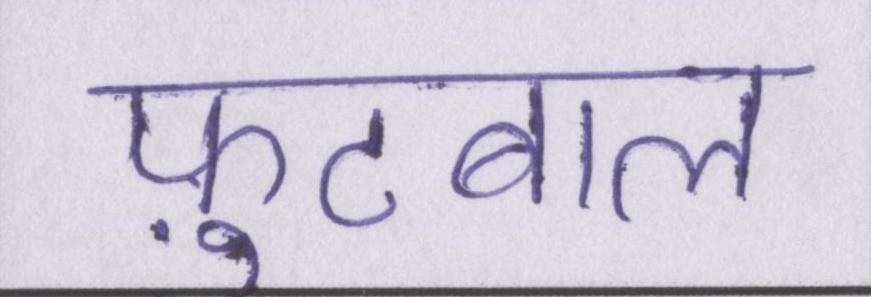 फ़ुटबाल